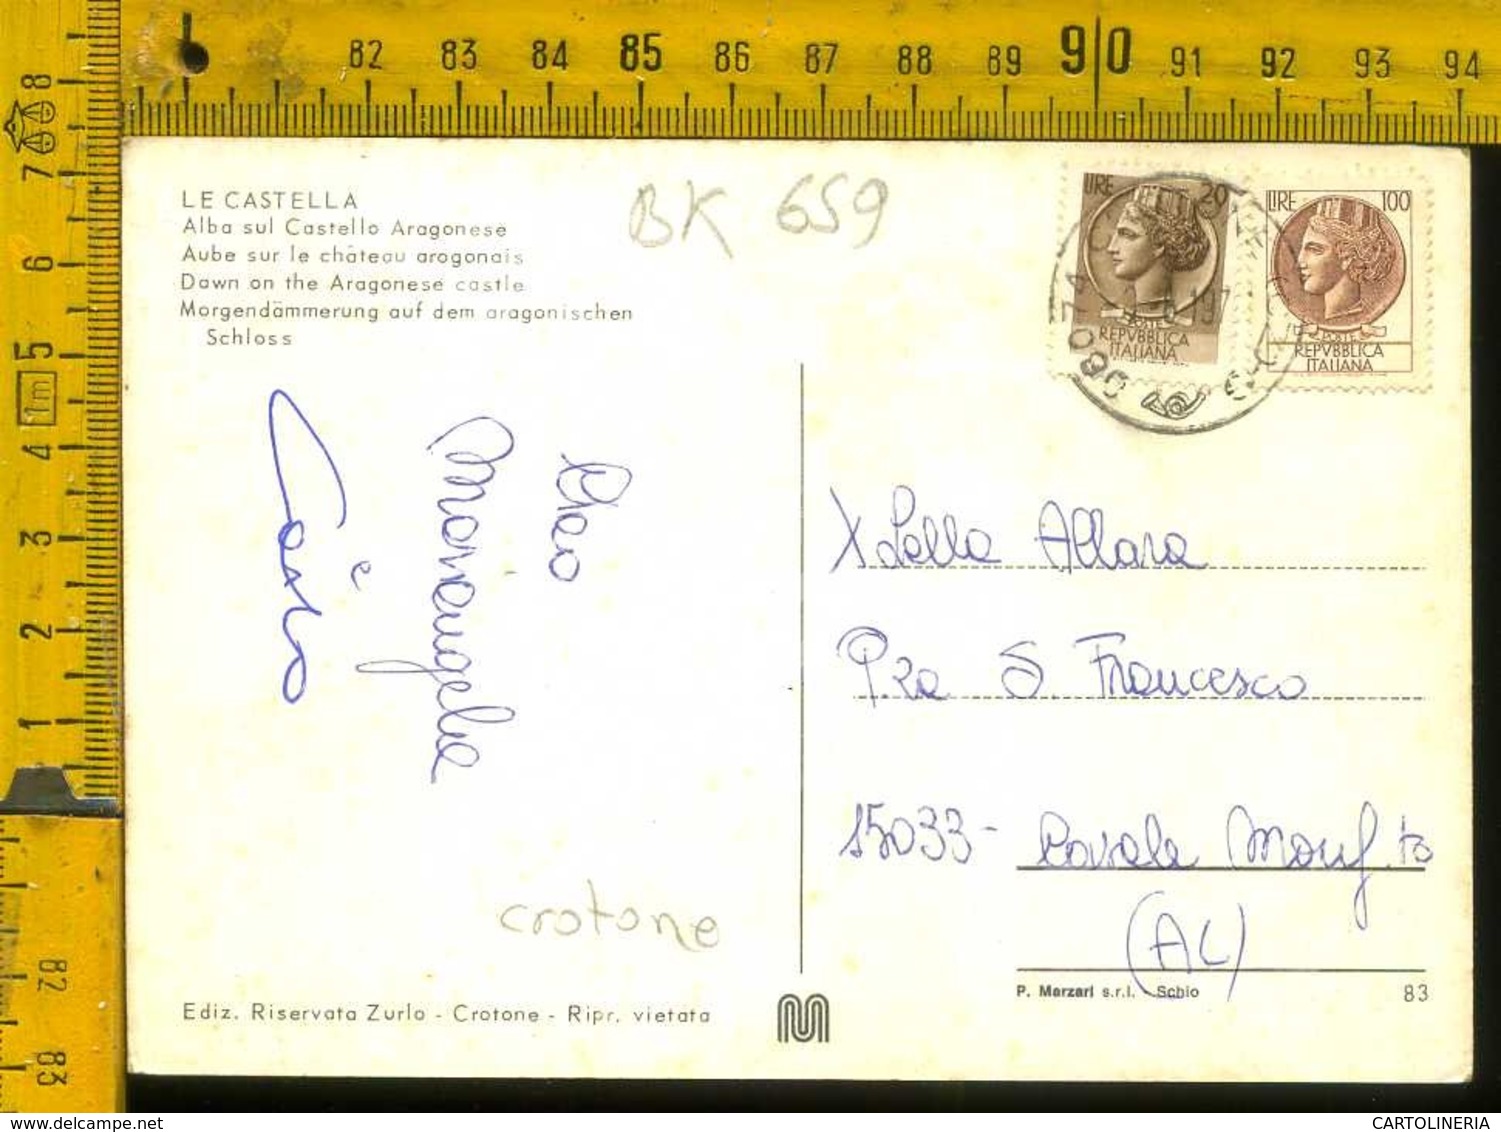 82 83 84 85 86 87 88 89 90 91 92 93 94
8
7
6
5
1m
4
3
2
1
82
83
LE CASTELLA
Alba sul Castello Aragonese
Aube sur le château aragonais
Dawn on the Aragonese castle
Morgendämmerung auf dem aragonischen
Schloss
BK 659
LIRE 20
REPVBBLICA
ITALIANA
LIRE 100
POSTE
REPVBBLICA
ITALIANA
Mariangela
e
Carlo
X Lella Allara
P.za S. Francesco
15033 - Casale Monf.to
(AL)
crotone
Ediz. Riservata Zurlo - Crotone - Ripr. vietata
P. Marzari s.r.l. - Schio
83
CARTOLINERIA